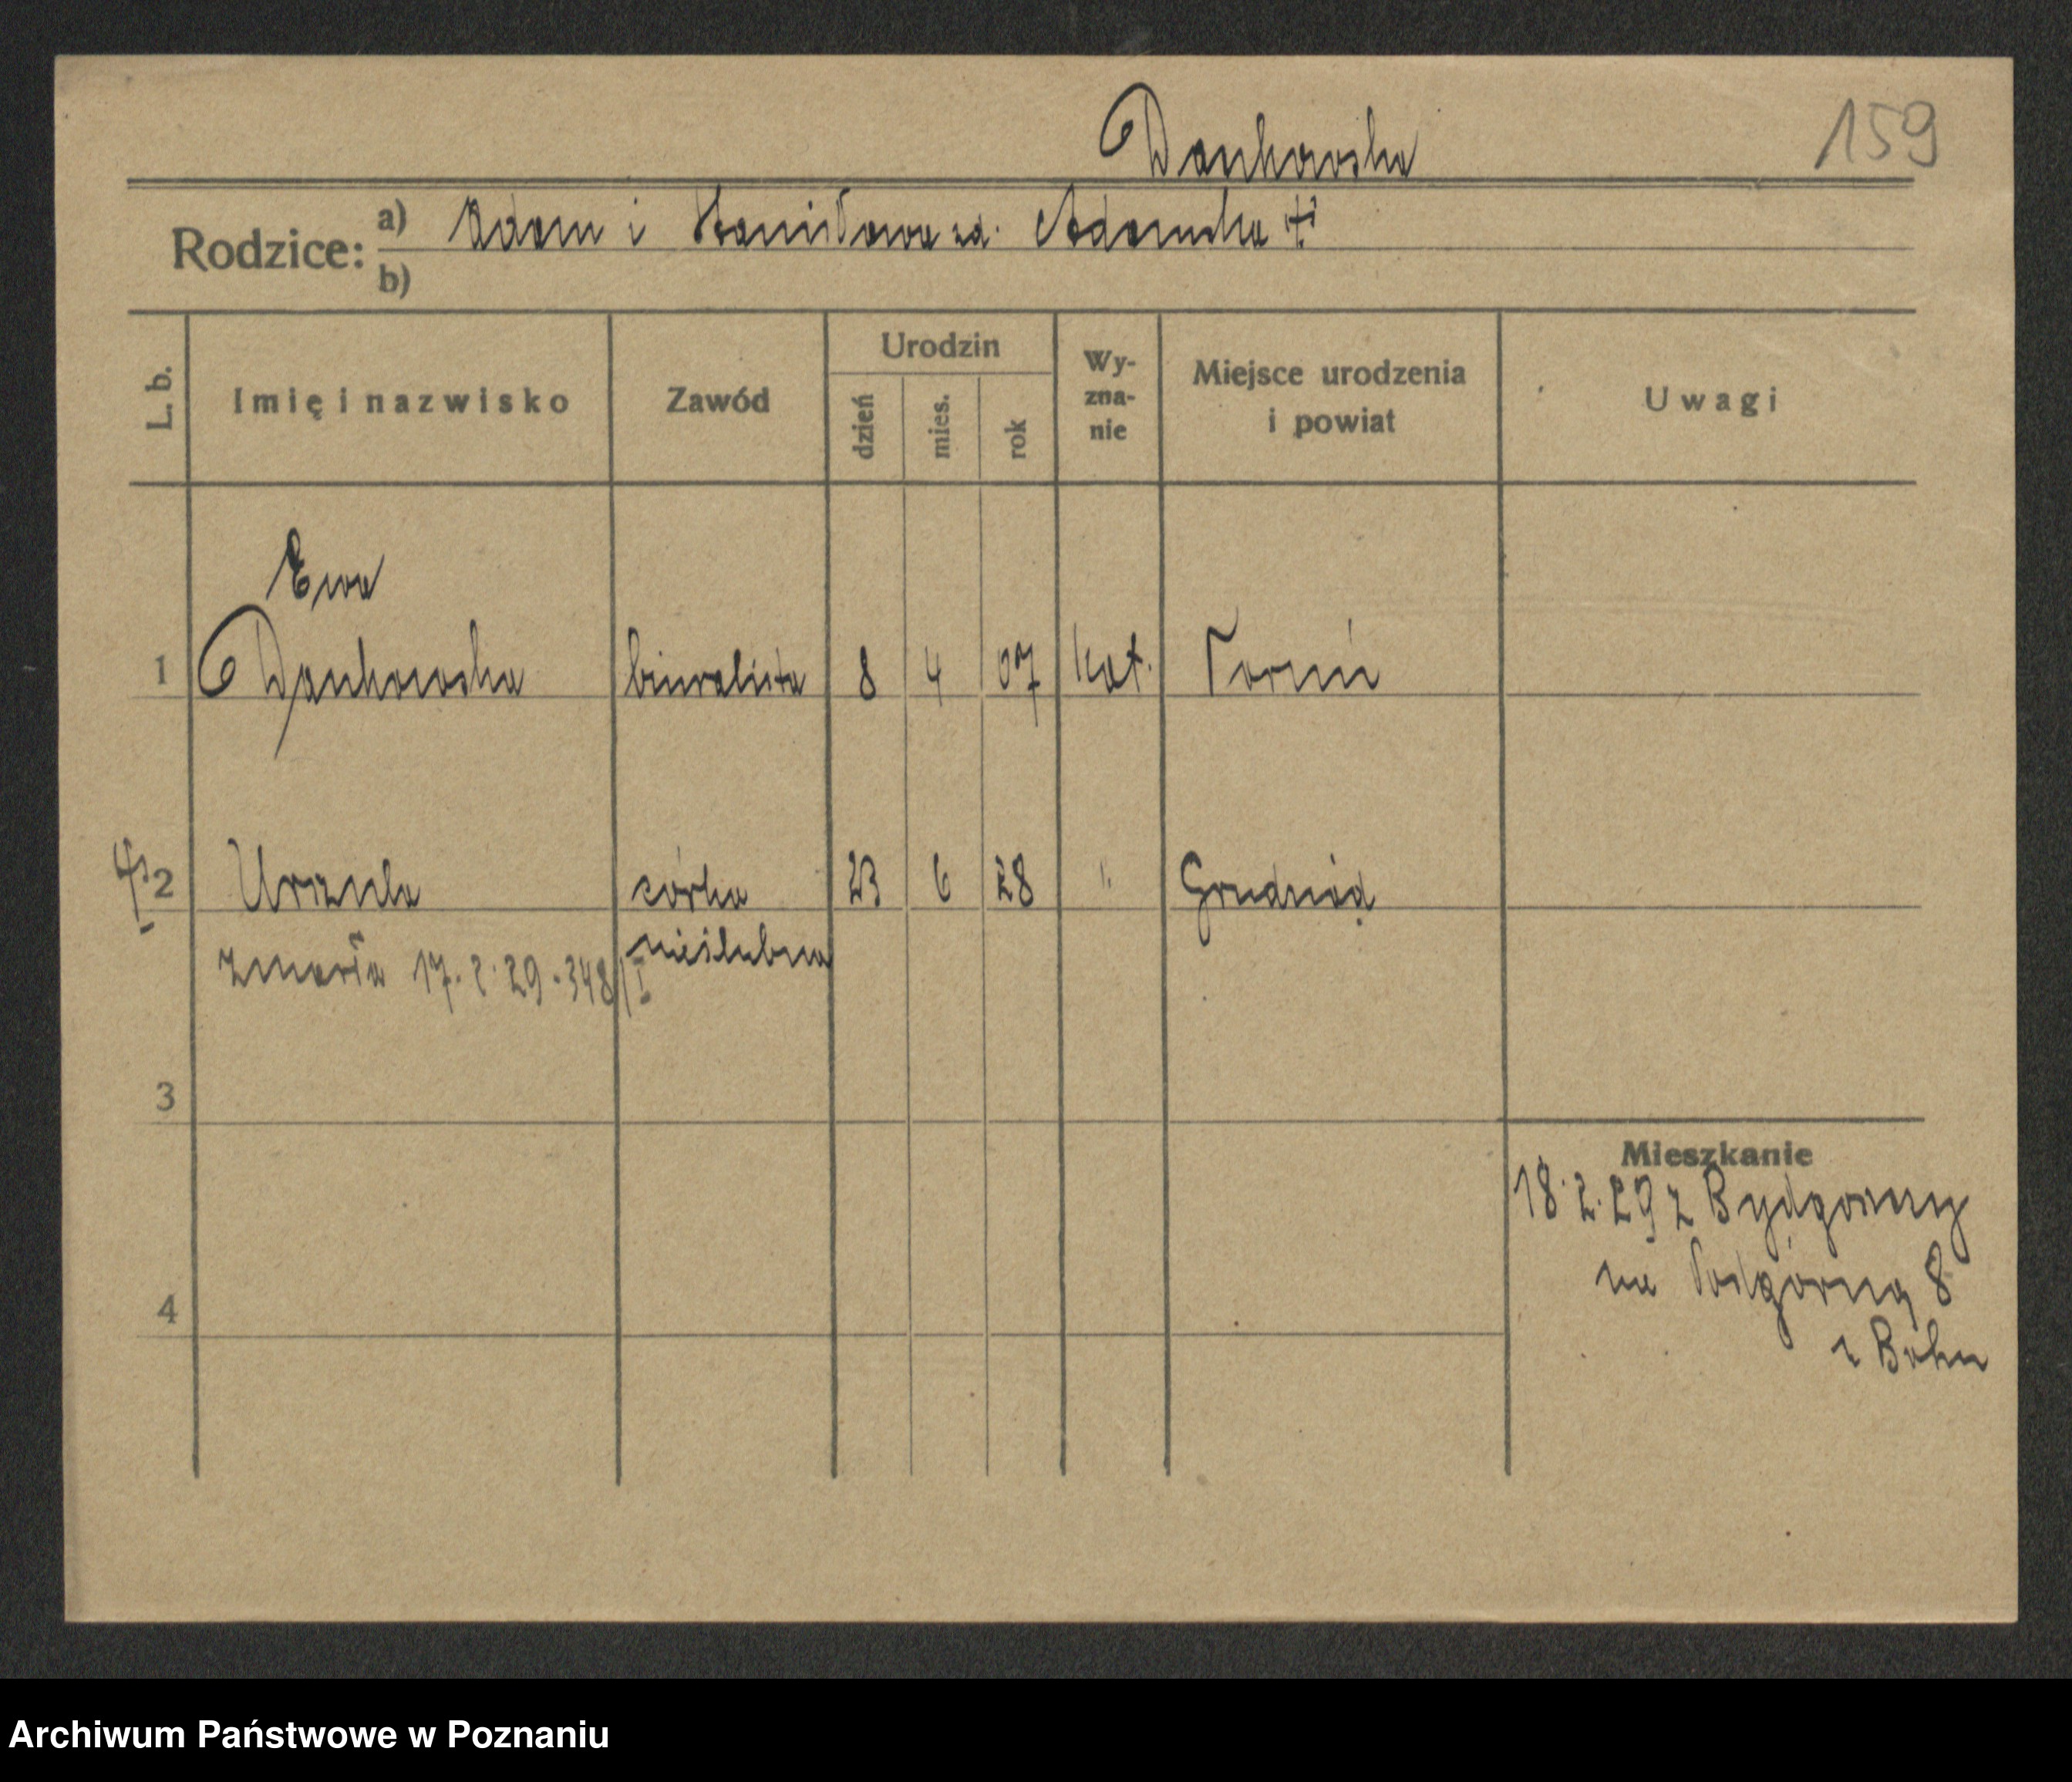 Dankowska
159
Rodzice: a) Adam i Stanisława zd. Adamska
b)
L. b. Imię i nazwisko Zawód Urodzin dzień mies. rok Wyznanie Miejsce urodzenia i powiat Uwagi
Ewa
1 Dankowska biuralista 8 4 07 kat. Toruń
2 Urszula córka 23 6 28 " Grudziąd
nieślubna
zmarła 17.2.29.348/I
3
Mieszkanie
18.2.29 z Bydgoszczy
na Podgórną 8
4
Archiwum Państwowe w Poznaniu